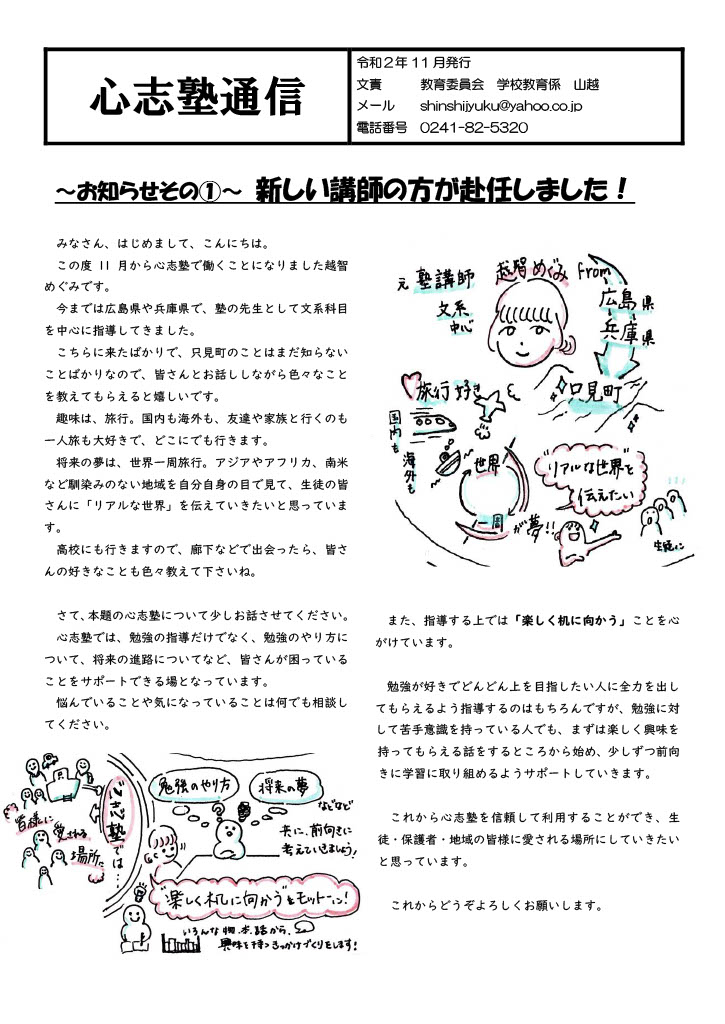 心志塾通信
令和２年１１月発行
文責　　教育委員会　学校教育係　山越
メール　　shinshijyuku@yahoo.co.jp
電話番号　0241-82-5320
～お知らせその①～　新しい講師の方が赴任しました！
みなさん、はじめまして、こんにちは。
この度 11 月から心志塾で働くことになりました越智
めぐみです。
今までは広島県や兵庫県で、塾の先生として文系科目
を中心に指導してきました。
こちらに来たばかりで、只見町のことはまだ知らない
ことばかりなので、皆さんとお話ししながら色々なこと
を教えてもらえると嬉しいです。
趣味は、旅行。国内も海外も、友達や家族と行くのも
一人旅も大好きで、どこにでも行きます。
将来の夢は、世界一周旅行。アジアやアフリカ、南米
など馴染みのない地域を自分自身の目で見て、生徒の皆
さんに「リアルな世界」を伝えていきたいと思っていま
す。
高校にも行きますので、廊下などで出会ったら、皆さ
んの好きなことも色々教えて下さいね。
さて、本題の心志塾について少しお話させてください。
心志塾では、勉強の指導だけでなく、勉強のやり方に
ついて、将来の進路についてなど、皆さんが困っている
ことをサポートできる場となっています。
悩んでいることや気になっていることは何でも相談し
てください。
元 塾講師
文系
中心
越智 めぐみ
from
広島県
兵庫県
只見町
旅行 好き
国内も
海外も
世界
一周
が夢!!
"リアルな世界"を
伝えたい
生徒に
また、指導する上では「楽しく机に向かう」ことを心
がけています。
勉強が好きでどんどん上を目指したい人に全力を出し
てもらえるよう指導するのはもちろんですが、勉強に対
して苦手意識を持っている人でも、まずは楽しく興味を
持ってもらえる話をするところから始め、少しずつ前向
きに学習に取り組めるようサポートしていきます。
これから心志塾を信頼して利用することができ、生
徒・保護者・地域の皆様に愛される場所にしていきたい
と思っています。
これからどうぞよろしくお願いします。
皆様に
愛される
場所に
心志塾では…
勉強のやり方
将来の夢
などなど
共に、前向きに
考えていきましょう!
"楽しく机に向かう"をモットーに!
いろんな物、本、話から、
興味を持つきっかけづくりをします!